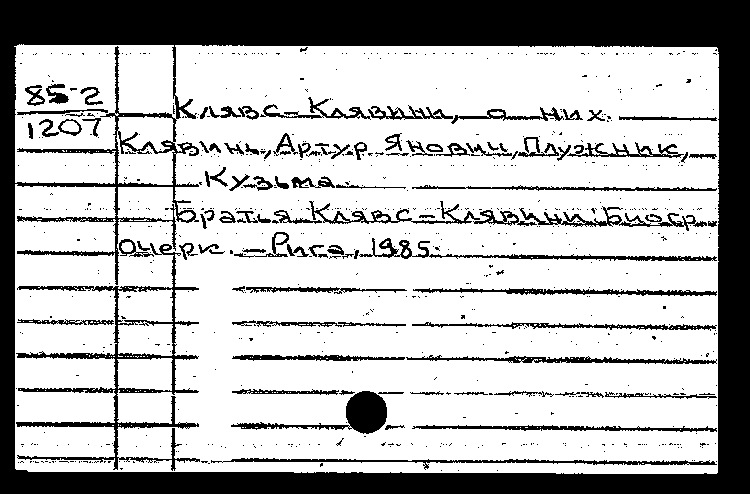 85-2
1207
Клявс-Клявини, о них.
Клявинь, Артур Янович, Плужник,
Кузьма.
Братья Клявс-Клявини: Биогр.
очерк. - Рига, 1985.